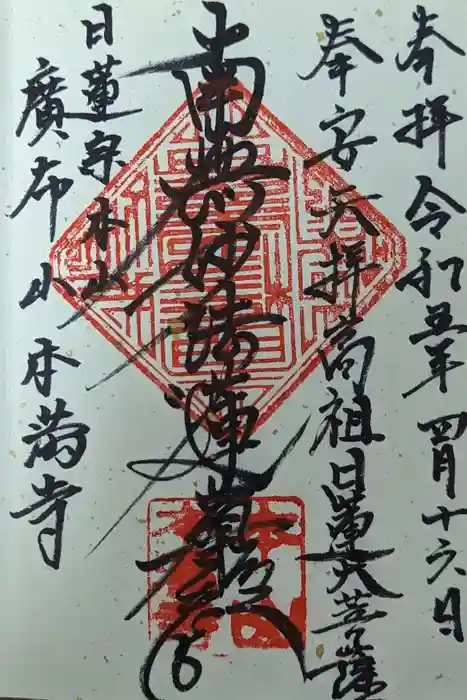 奉拝 令和五年四月十六日
奉安天拝高祖日蓮大菩薩
南無妙法蓮華経
日蓮宗本山
廣布山本満寺